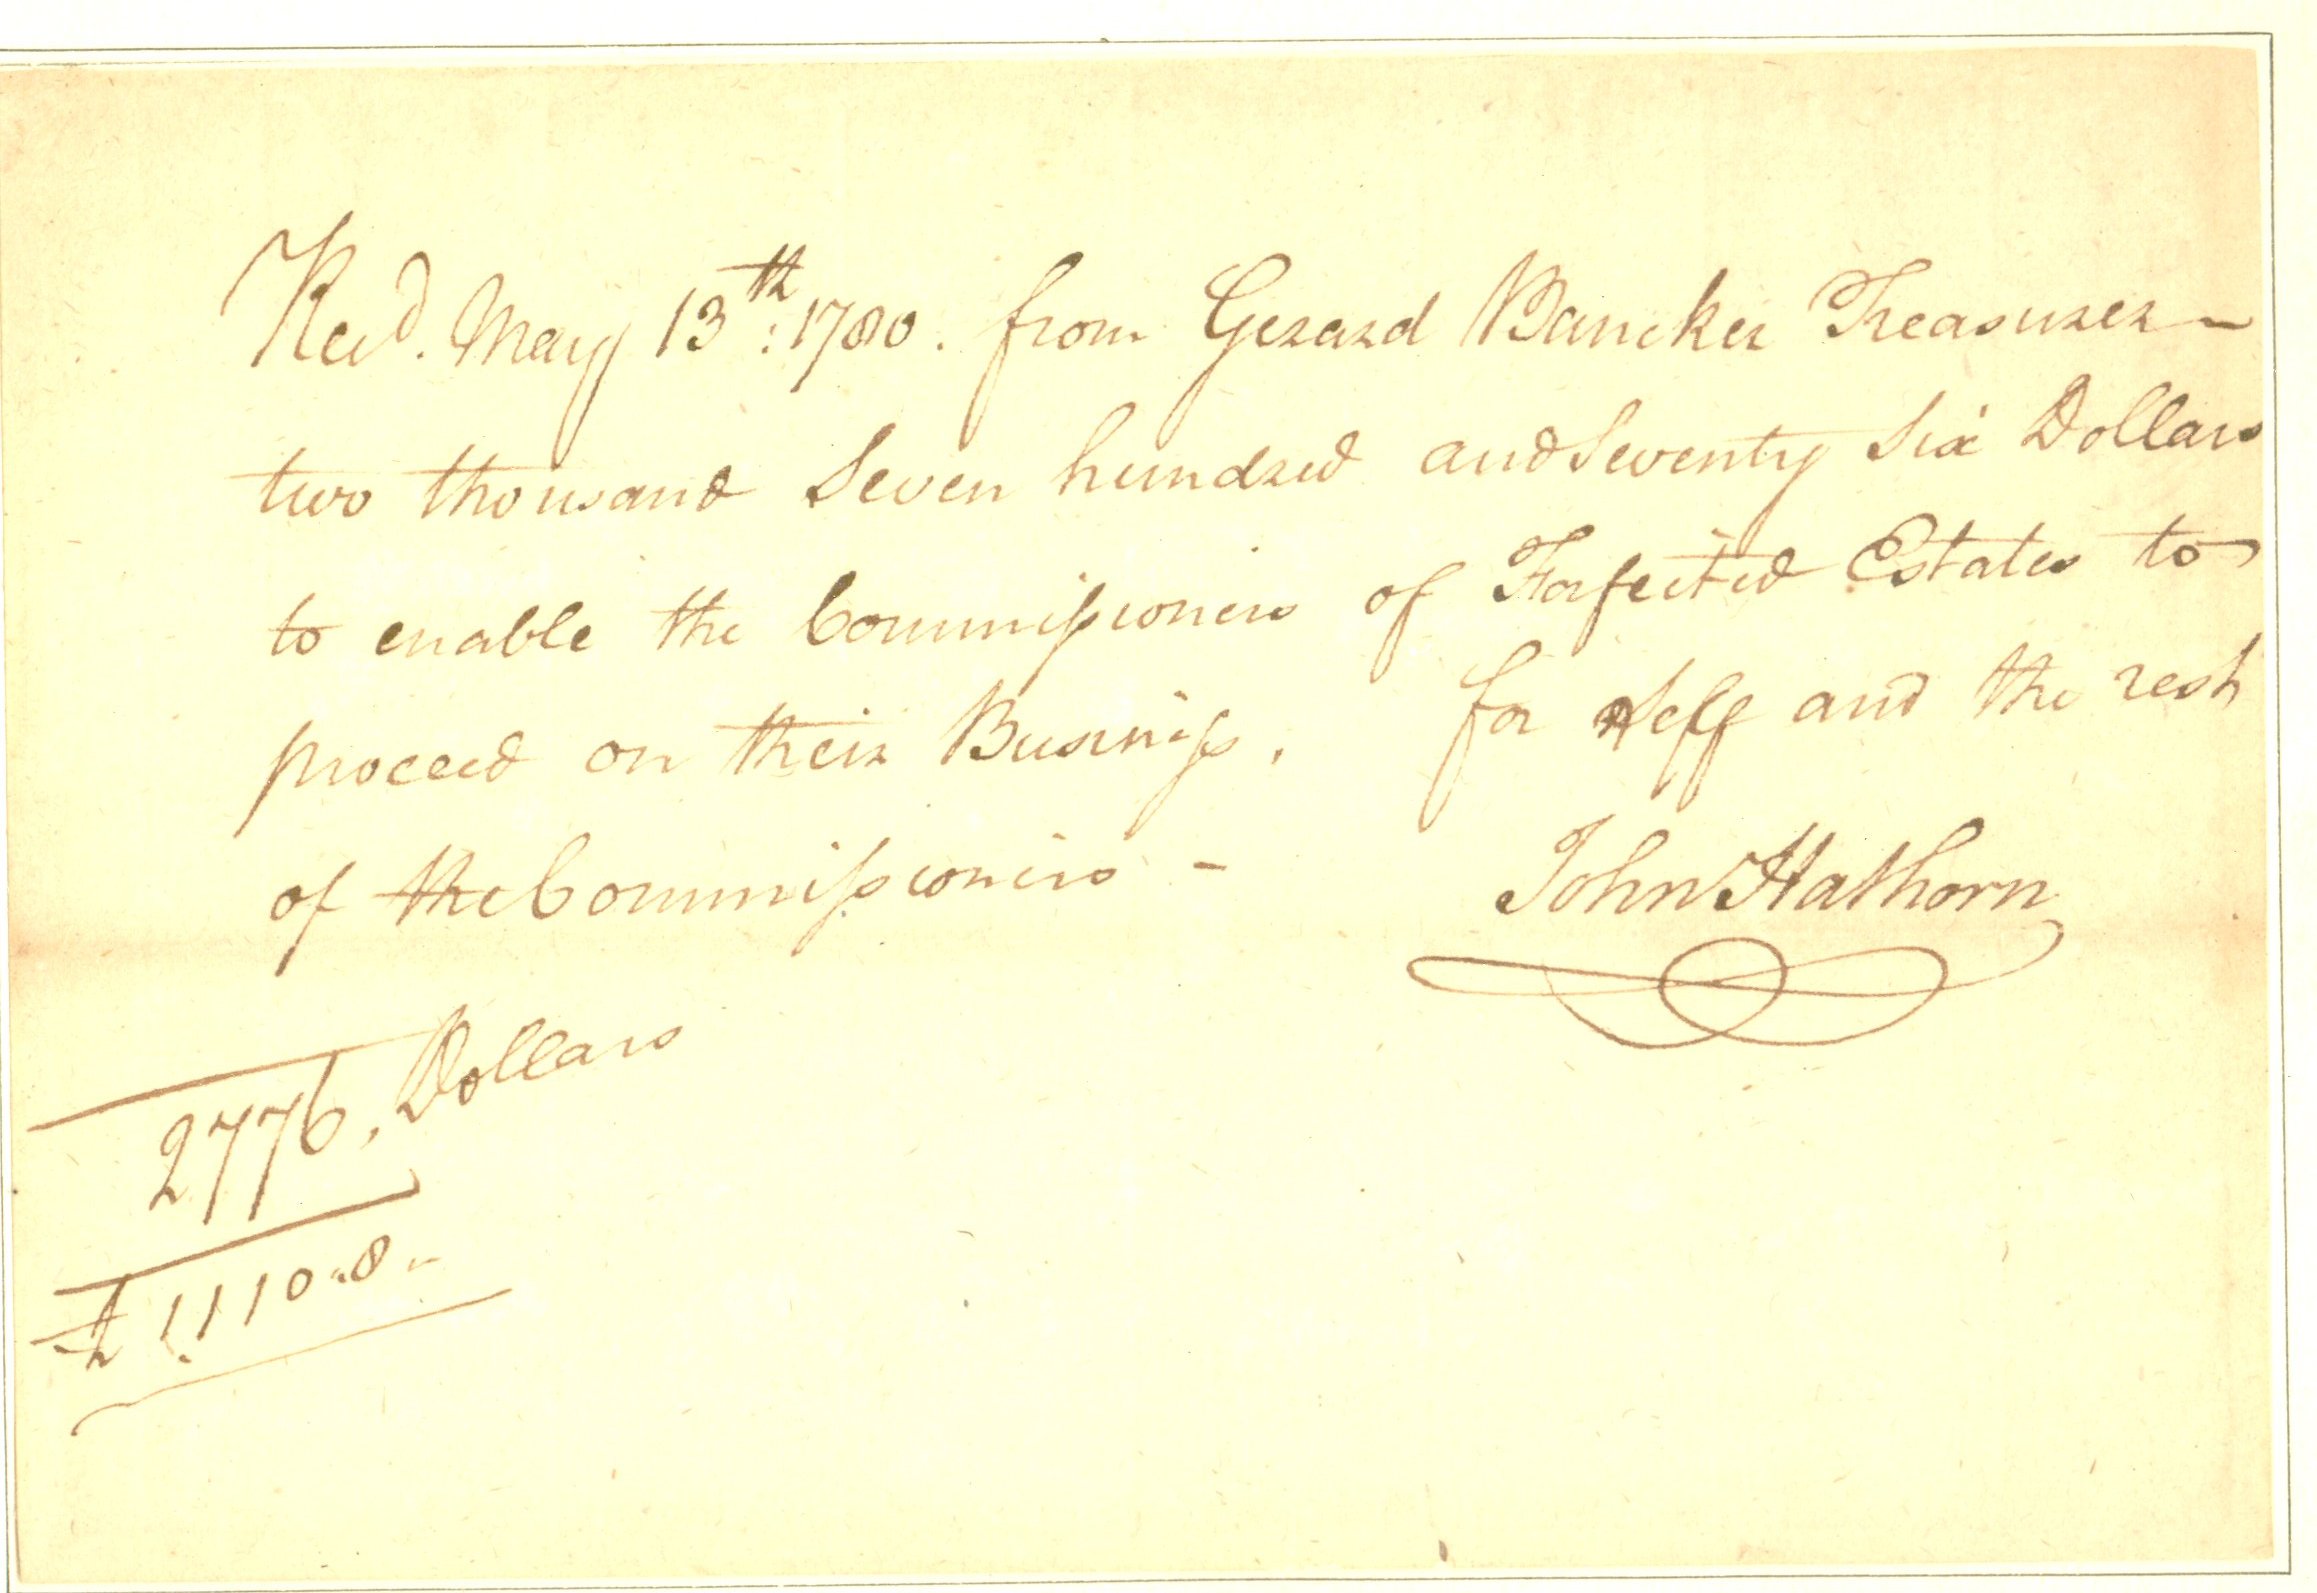 Recd. May 13th: 1780. from Gerard Bancker Treasurer –
two thousand Seven hundred and Seventy Six Dollars
to enable the Commissioners of Forfeited Estates to
proceed on their Business. for Self and the rest
of the Commissioners –
John Hathorn
2776, Dollars
£ 1110 „ 8 „